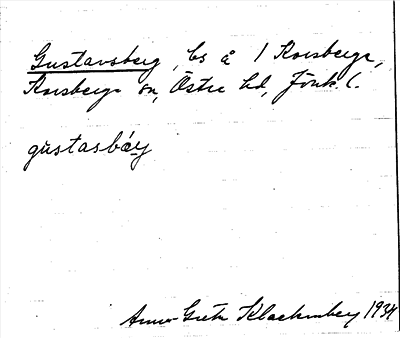 Gustavsberg, ls å 1 Korsberga,
Korsberga sn, Östra hd, Jönk. l.
gustasbær̨j
Anna-Greta Klackenberg 1934